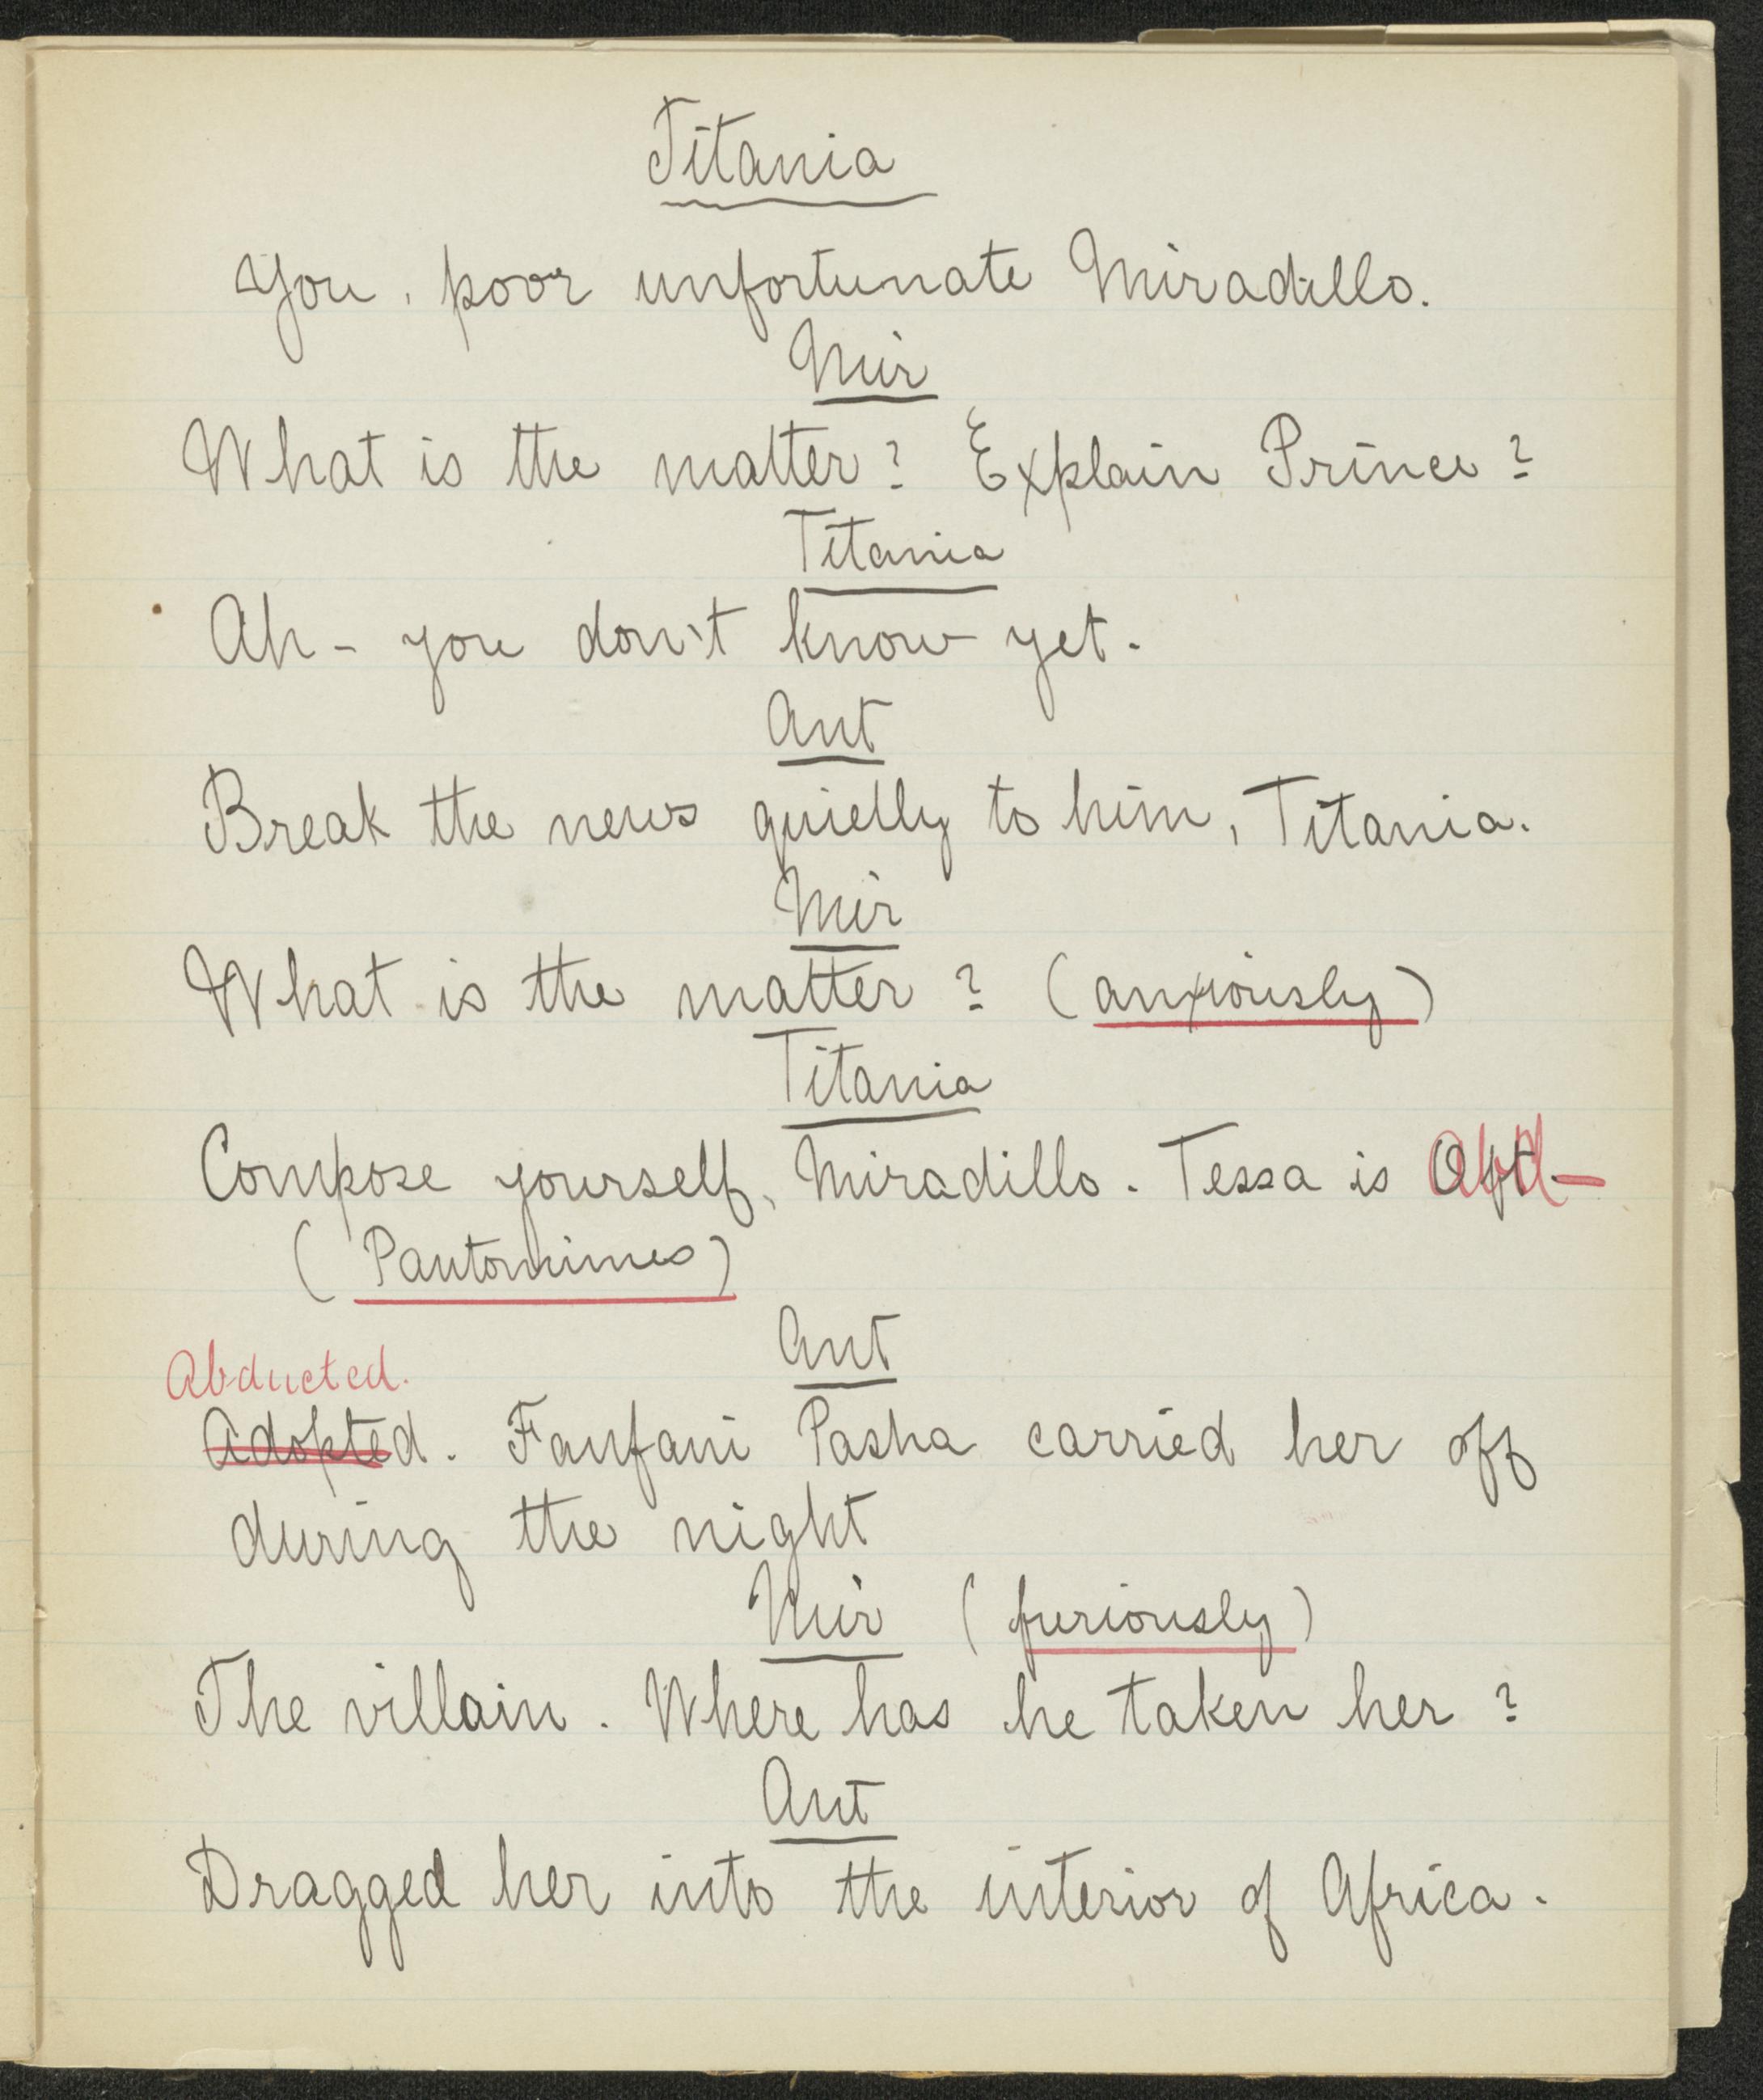 Titania
You, poor unfortunate Miradillo.
Mir
What is the matter? Explain Prince?
Titania
Ah - you don't know yet.
Ant
Break the news quietly to him, Titania.
Mir
What is the matter? (anxiously)
Titania
Compose yourself, Miradillo. Tessa is Abd-
(Pantomimes)
Ant
Abducted.
Adopted. Fanfani Pasha carried her off
during the night
Mir (furiously)
The villain. Where has he taken her?
Ant
Dragged her into the interior of Africa.